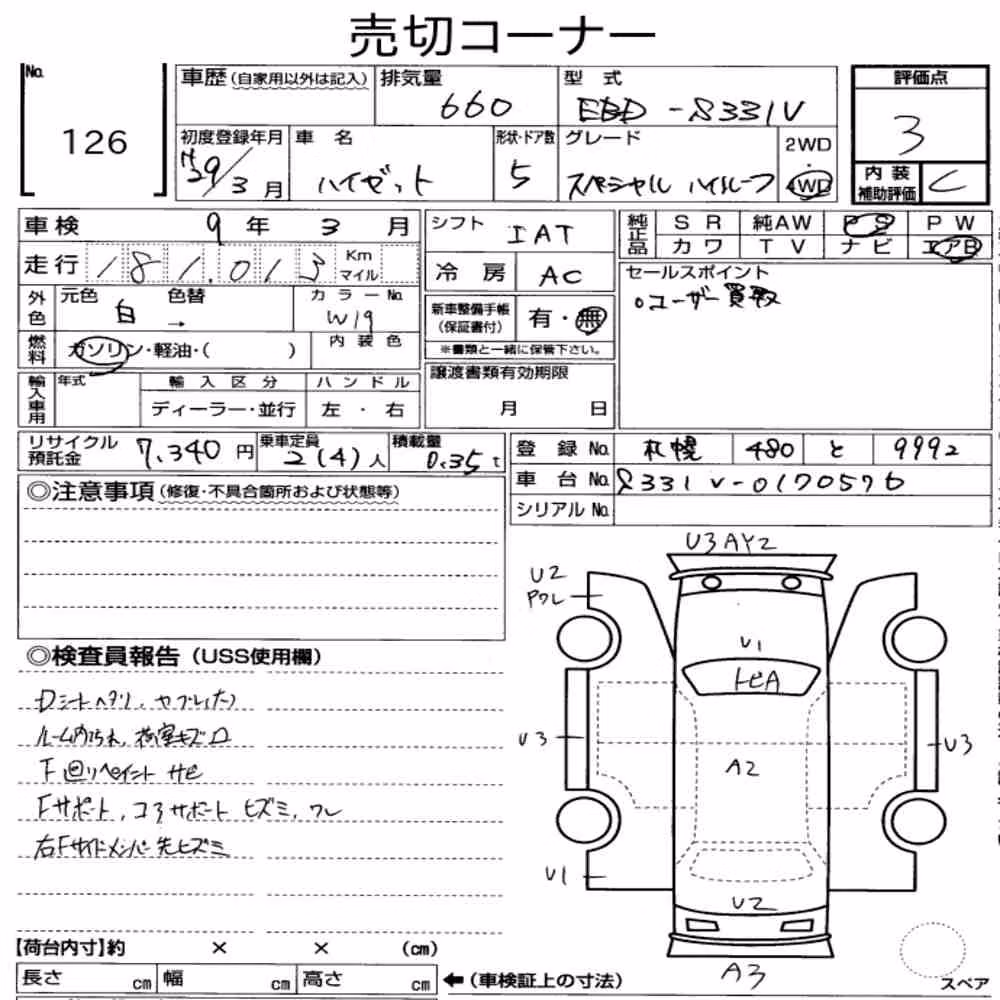 売切コーナー
No. 126
車歴(自家用以外は記入) 排気量 660 型 式 EBD -S331V
評価点 3
初度登録年月 H29/3月 車 名 ハイゼット 形状・ドア数 5 グレード スペシャル ハイルーフ 2WD・4WD
内装補助評価 C
車検 9年 3月
走行 181,013 Km マイル
外色 元色 白 色替 → カラーNo. W19
燃料 ガソリン・軽油・( ) 内装色
輸入車用 年式 輸入区分 ディーラー・並行 ハンドル 左・右
シフト IAT
冷房 AC
新車整備手帳(保証書付) 有・無
※書類と一緒に保管下さい。
譲渡書類有効期限
月 日
純正品 SR 純AW PS PW
カワ TV ナビ エアB
セールスポイント
○ユーザー買取
リサイクル預託金 7,340円 乗車定員 2(4)人 積載量 0.35t
登録No. 札幌 480 と 9992
車台No. S331V-0170576
シリアルNo.
◎注意事項(修復・不具合箇所および状態等)
◎検査員報告(USS使用欄)
Dシートヘタリ、ヤブレ(大)
ルーム内汚れ、荷室キズ凹
下回りペイント サビ
Fサポート、コアサポート ヒズミ、ワレ
右Fサイドメンバー先ヒズミ
U3 AY2
U2
Pワレ
U1
トビA
U3
U3
A2
U1
U2
A3
スペア
【荷台内寸】約 × × (cm)
長さ cm 幅 cm 高さ cm ←(車検証上の寸法)